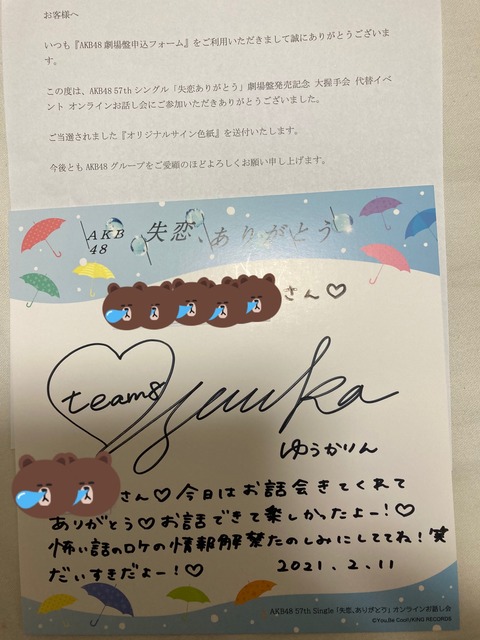 お客様へ
いつも『AKB48劇場盤申込フォーム』をご利用いただきまして誠にありがとうございま
す。
この度は、AKB48 57thシングル「失恋ありがとう」劇場盤発売記念 大握手会 代替イベ
ント オンラインお話し会にご参加いただきありがとうございました。
ご当選されました『オリジナルサイン色紙』を送付いたします。
今後ともAKB48グループをご愛顧のほどよろしくお願い申し上げます。
AKB
48
失恋、ありがとう
さん♡
team8
Yuuka
ゆうかりん
さん♡今日はお話会きてくれて
ありがとう♡お話できて楽しかったよー!♡
怖い話のロケの情報解禁たのしみにしててね!笑
だいすきだよー!♡ 2021.2.11
AKB48 57th Single「失恋、ありがとう」オンラインお話し会
©You,Be Cool!/KING RECORDS